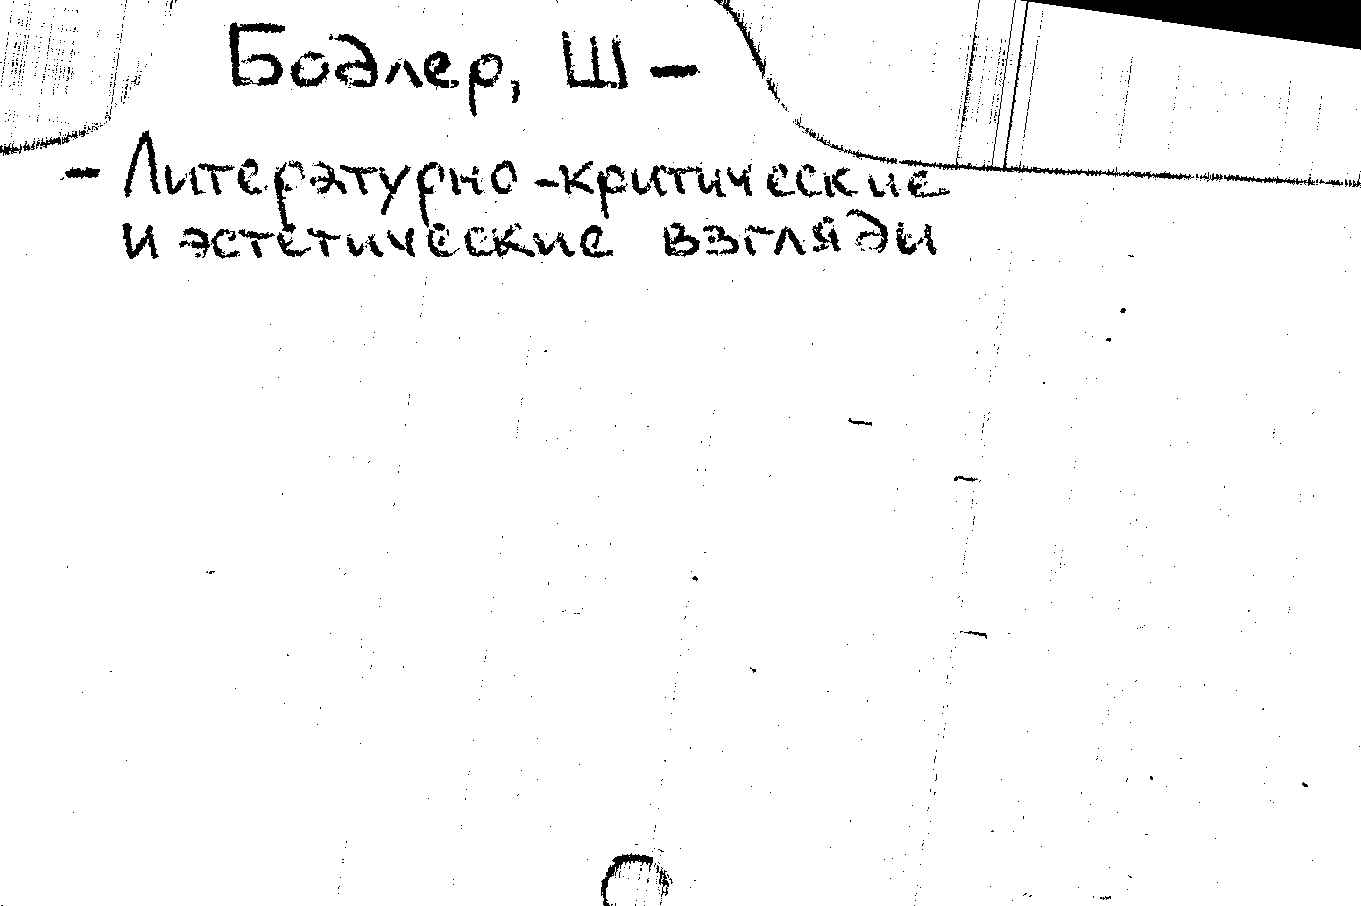 Бодлер, Ш –
– Литературно-критические
и эстетические взгляди